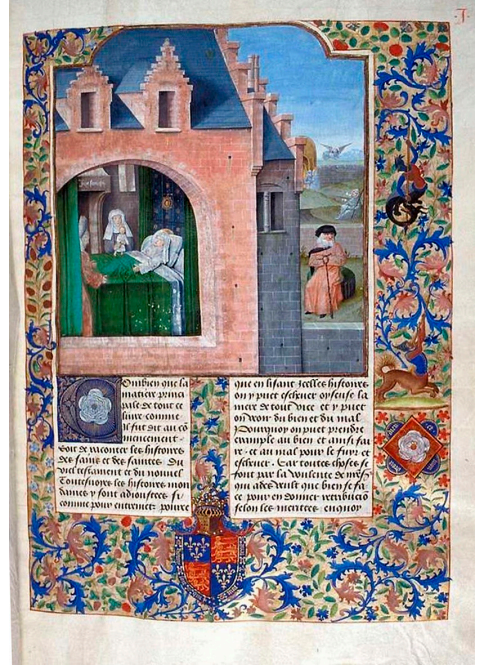 .J.
Ombien que la
matiere princi
pale de tout ce
liure comme
il fut dit au cō
mencement
soit de raconter les histoires
des sains et des saintes. Du
viel testament et du nouuel
Toutesuoyes les histoires mon
daines y sont adioustees si
comme pour entremez. pource
que en lisant Icelles histoires
on y puet eschieuer oyseuse la
mere de tout vice et y puet
on veoir du bien et du mal
Pourquoy on puet prendre
exemple au bien et ainsi fai
re. et au mal pour le fuyr et
eschieuer. Car toutes choses se
font par la voulente de
qui
ce pour en donner retribucion
selon les merites en quoy